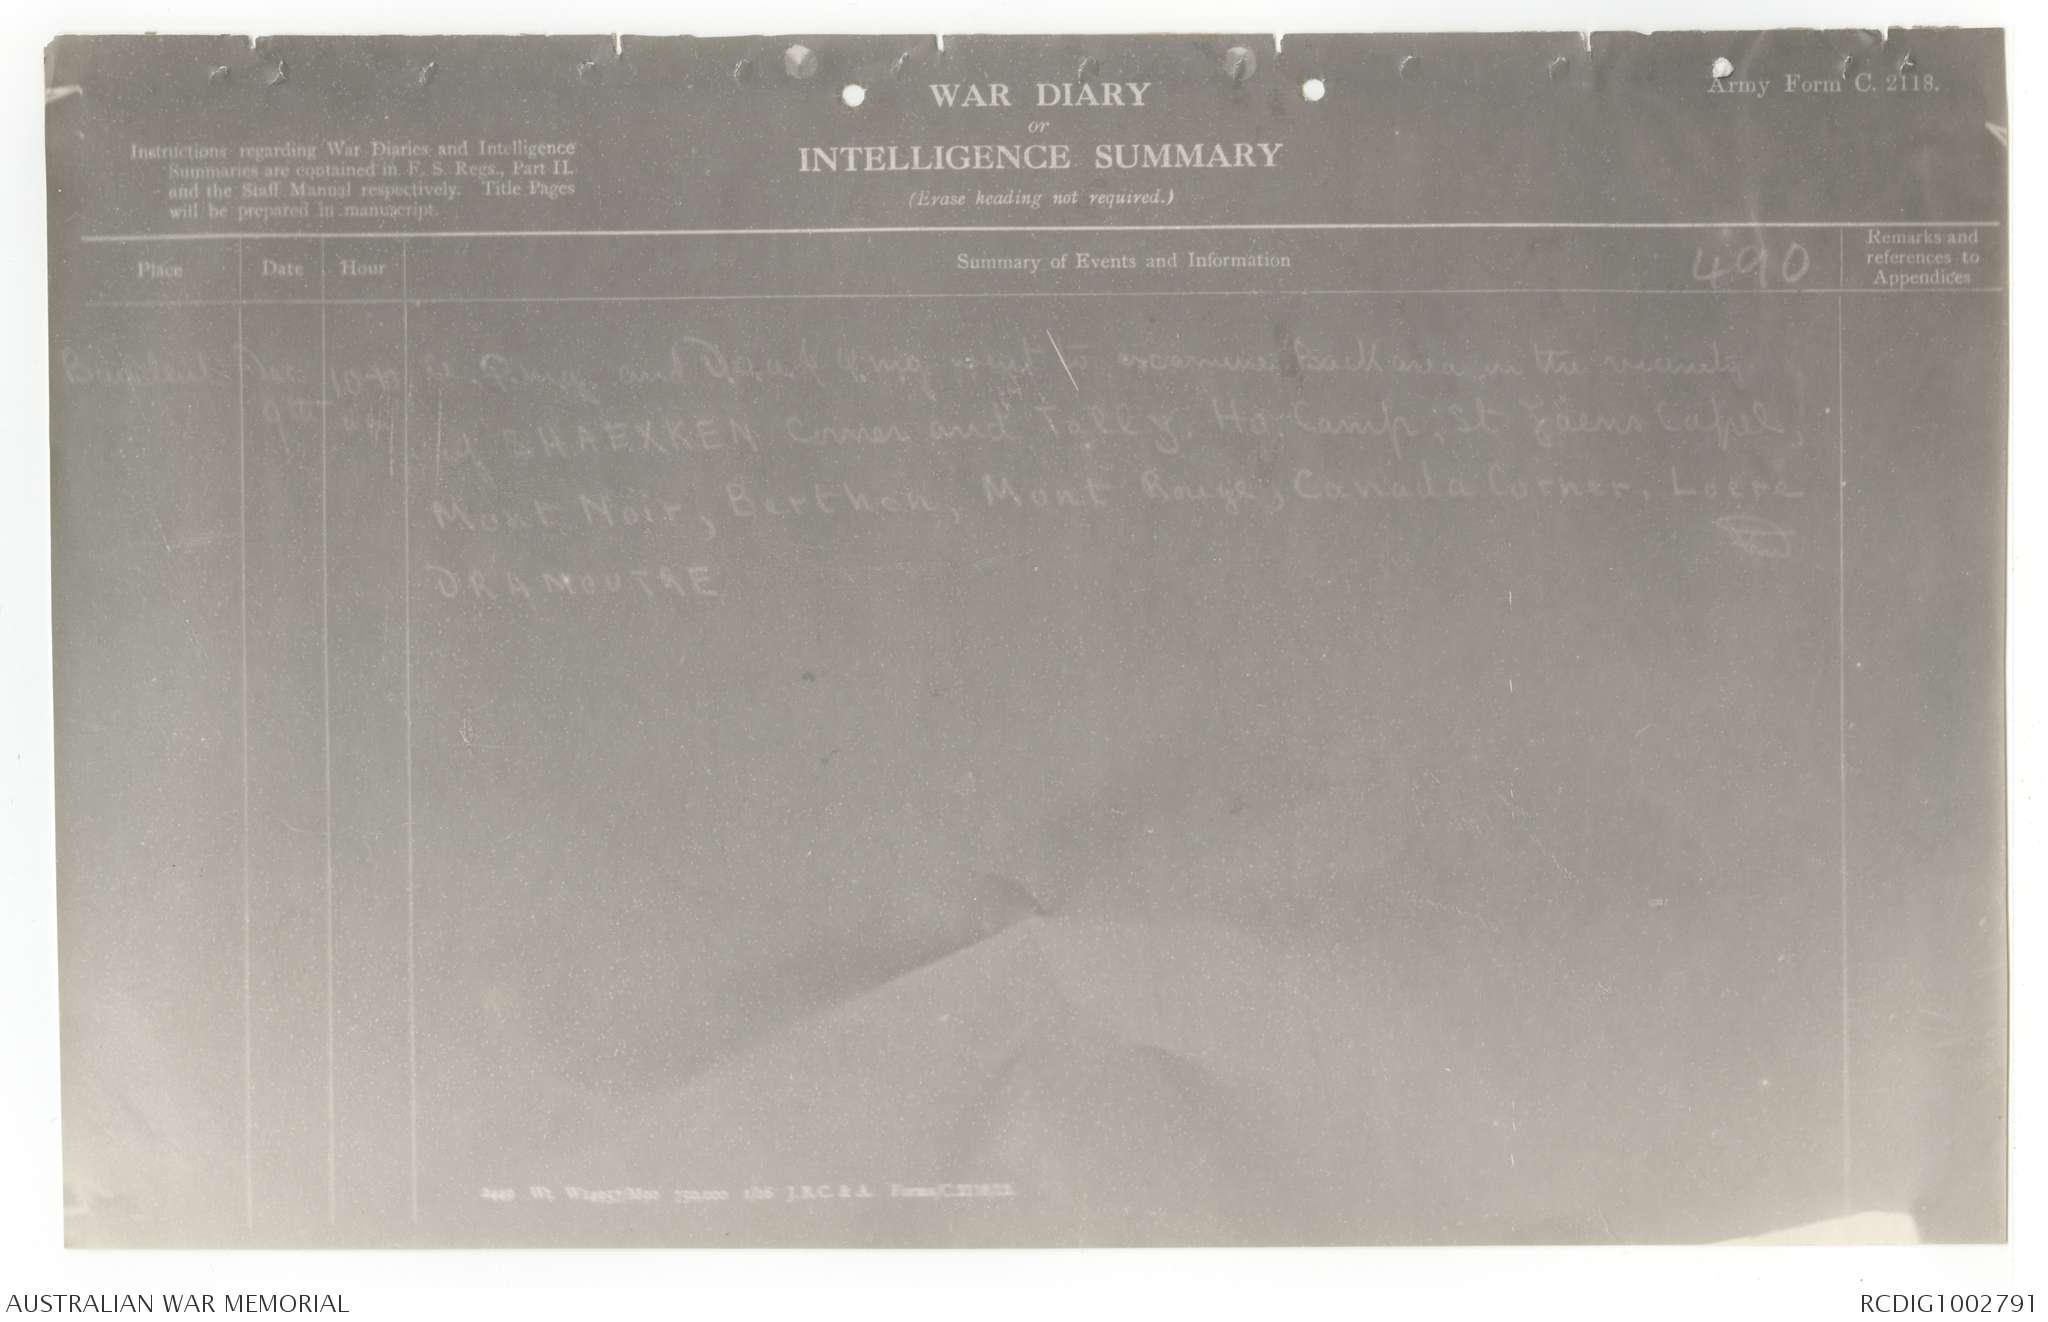 WAR DIARY
or
INTELLIGENCE SUMMARY
(Erase heading not required.)
Army Form C. 2118.
Instructions regarding War Diaries and Intelligence
Summaries are contained in F. S. Regs., Part II.
and the Staff Manual respectively. Title Pages
will be prepared in manuscript.
Place
Date
Hour
Summary of Events and Information
490
Remarks and
references to
Appendices
Dec and went to examine Back area in the vicinity
9th of SHAEXKEN Corner and Tally Ho Camp, St Jaens Capel,
Mont Noir, Berthen, Mont Rouge, Canada Corner, Locre
and
DRAMOUTRE
J.B.C. & A. Forms/C.2118/12.
AUSTRALIAN WAR MEMORIAL
RCDIG1002791